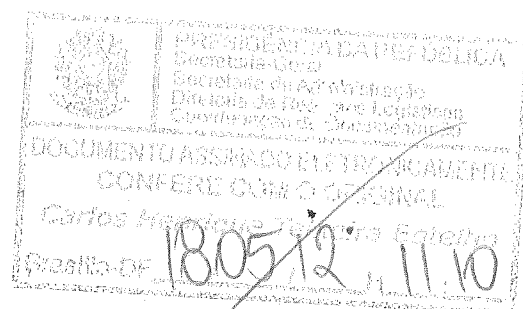 PRESIDÊNCIA DA REPÚBLICA
Secretaria-Geral
Secretaria de Administração
Diretoria de Recursos Logísticos
Coordenação de Documentação
DOCUMENTO ASSINADO ELETRONICAMENTE
CONFERE COM O ORIGINAL
Carlos Henrique Teixeira
Brasília-DF 18.05.12, 11:10